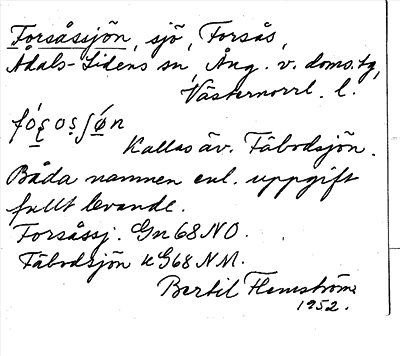 Forsåssjön, sjö, Forsås,
Ådals-Lidens sn, Ång. v. doms.tg,
Västernorrl. l.
Kallas äv. Fäbodsjön.
Båda namnen enl. uppgift
fullt levande.
Forsåssj. Gn 68 NO.
Fäbodsjön k G68 NM.
Bertil Flemström
1952.